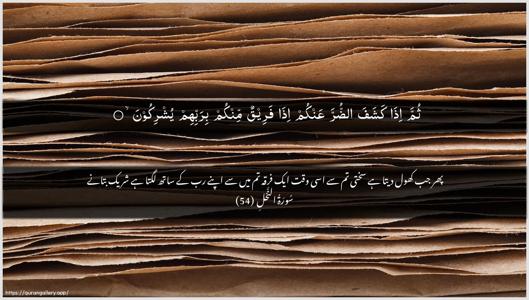 ثُمَّ اِذَا كَشَفَ الضُّرَّ عَنْكُمْ اِذَا فَرِيْقٌ مِّنْكُمْ بِرَبِّهِمْ يُشْرِكُوْنَ ۙ ۝
پھر جب کھول دیتا ہے سختی تم سے اسی وقت ایک فرقہ تم میں سے اپنے رب کے ساتھ لگتا ہے شریک بتانے
سُوْرَةُ النَّحْلِ (54)
https://qurangallery.app/